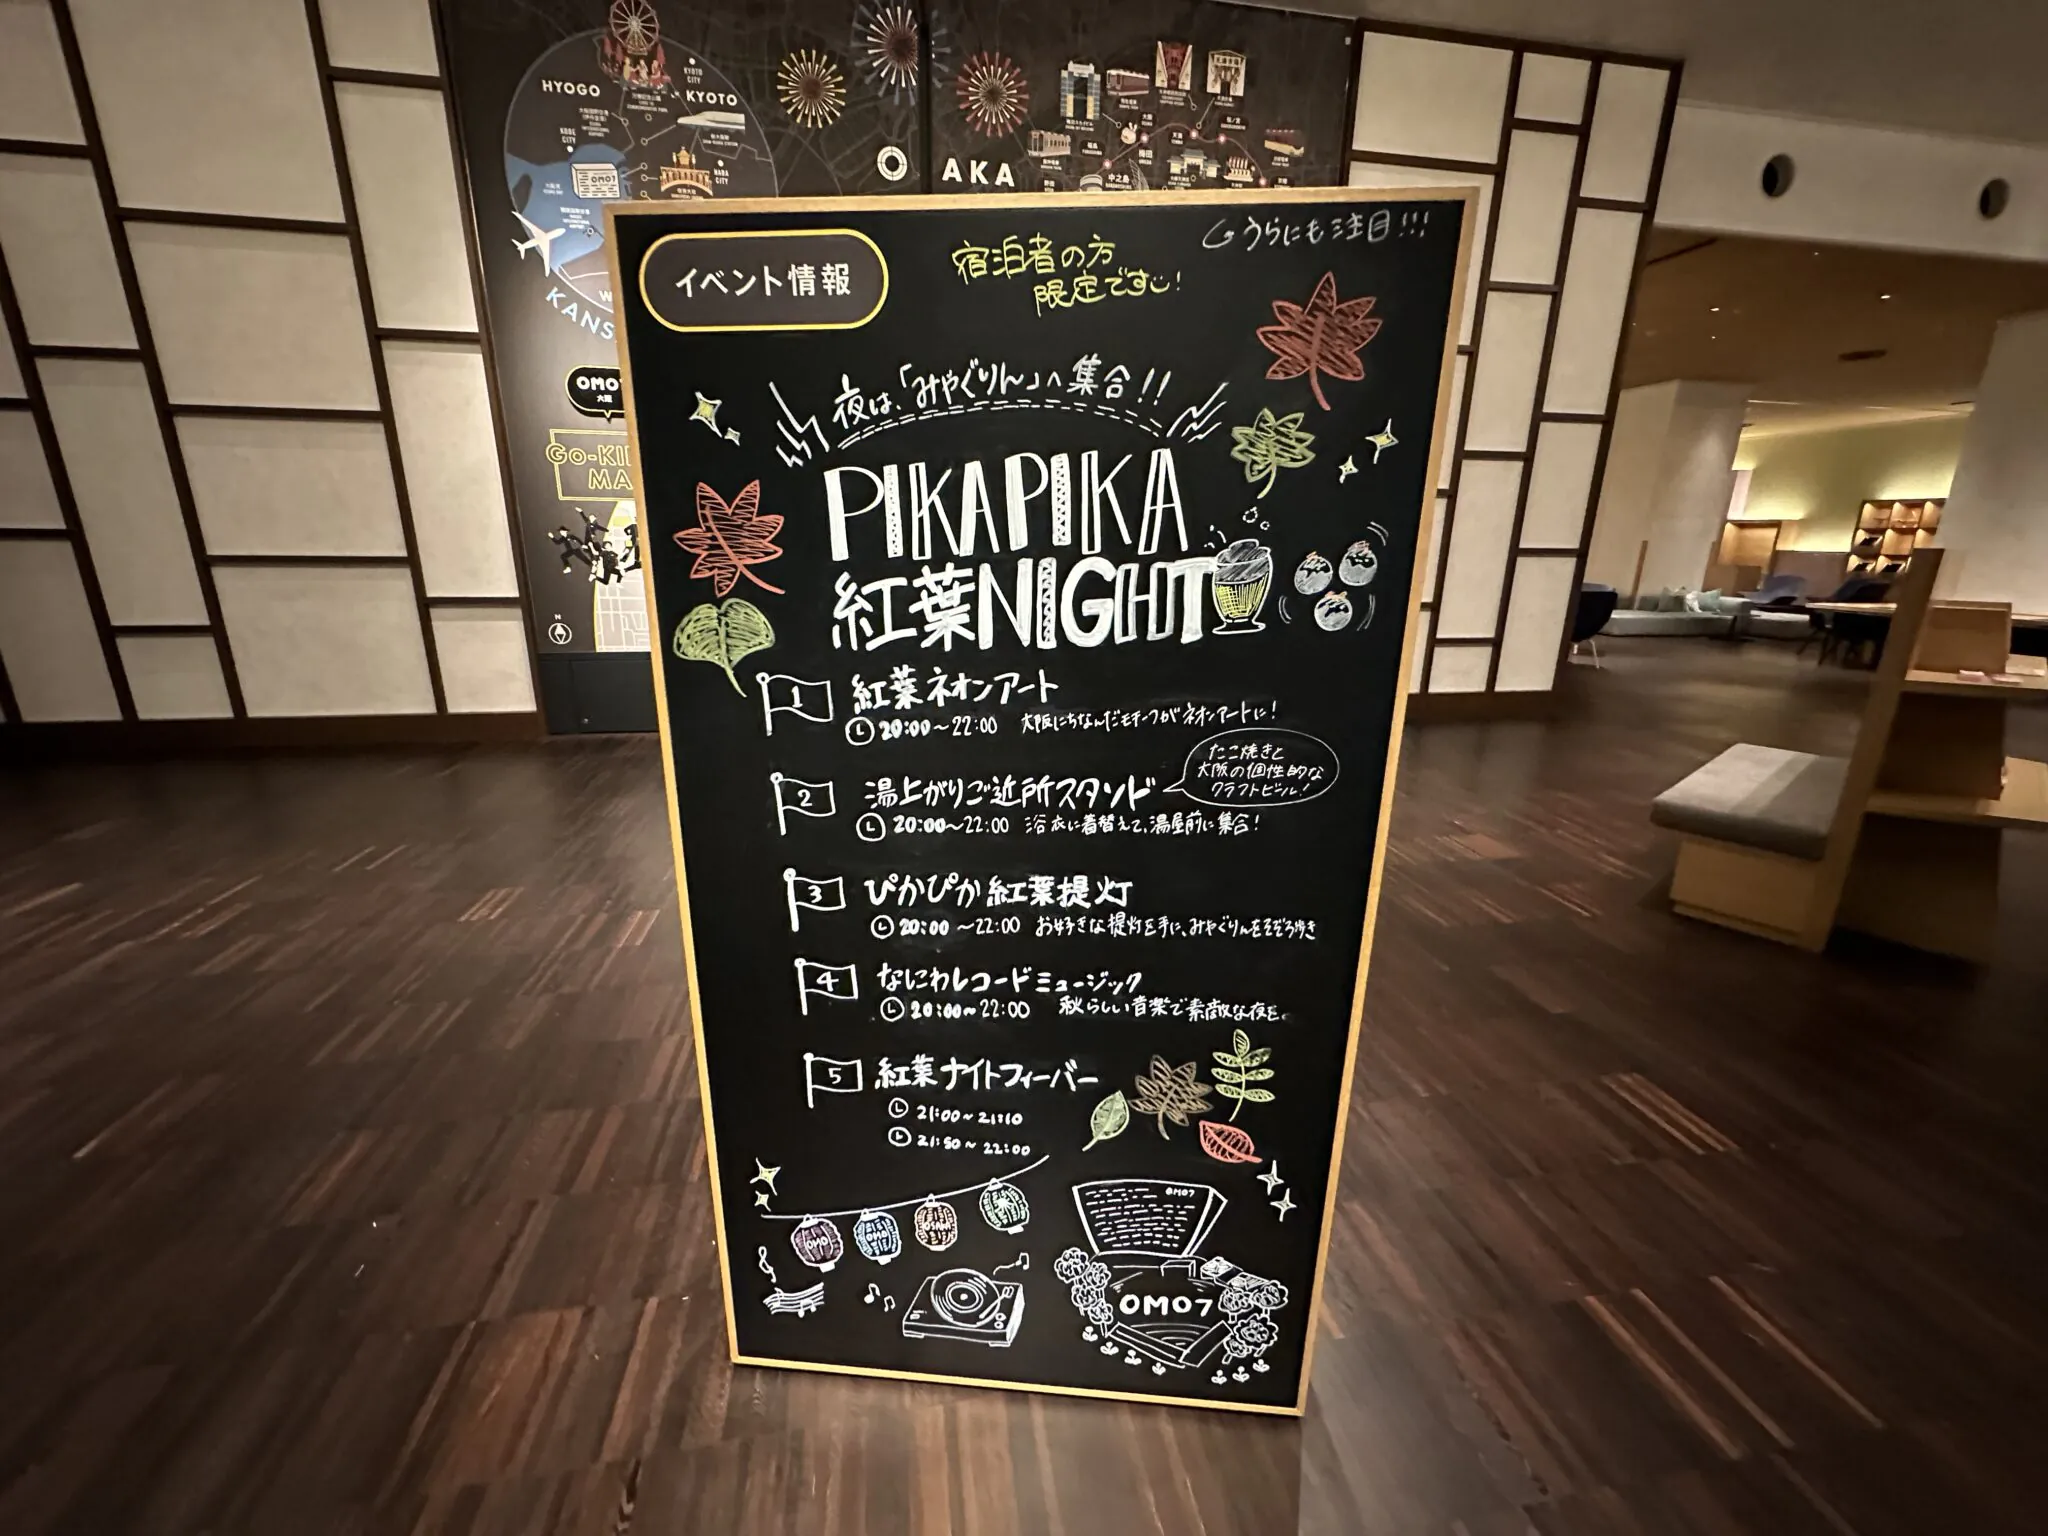 HYOGO
KYOTO CITY
KYOTO
KOBE CITY
NARA CITY
OMO7
AKA
大阪
福島
梅田
中之島
KANS
OMO7
大阪
N
イベント情報
宿泊者の方
限定です!
うらにも注目!!!
夜は、「みやぐりん」へ集合!!
PIKAPIKA
紅葉NIGHT
1 紅葉ネオンアート
20:00~22:00 大阪にちなんだモチーフがネオンアートに!
2 湯上がりご近所スタンド
たこ焼きと
大阪の個性的な
クラフトビール!
20:00~22:00 浴衣に着替えて、湯屋前に集合!
3 ぴかぴか紅葉提灯
20:00~22:00 お好きな提灯を手に、みやぐりんをそぞろ歩き
4 なにわレコードミュージック
20:00~22:00 秋らしい音楽で素敵な夜を。
5 紅葉ナイトフィーバー
21:00~21:10
21:50~22:00
OMO
OMO
OSAKA
OMO7
OMO7